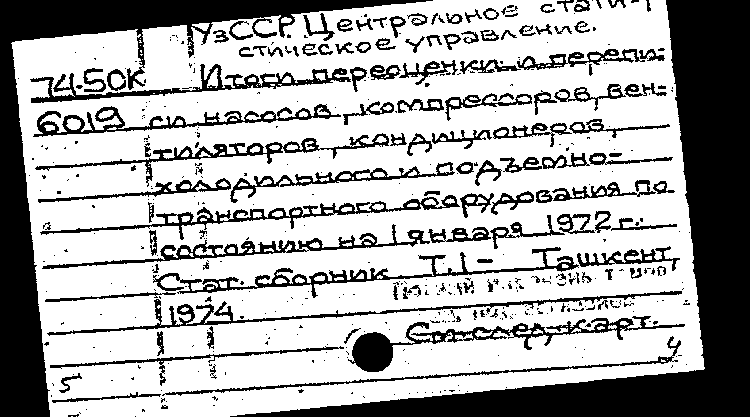 УзССР. Центральное стати-
стическое управление.
74-50К Итоги переоценки и перепи-
6019 си насосов, компрессоров, вен-
тиляторов, кондиционеров,
холодильного и подъемно-
транспортного оборудования по
состоянию на 1 января 1972 г.
Стат. сборник. Т.1- Ташкент,
1974.
См. след. карт.
5 у